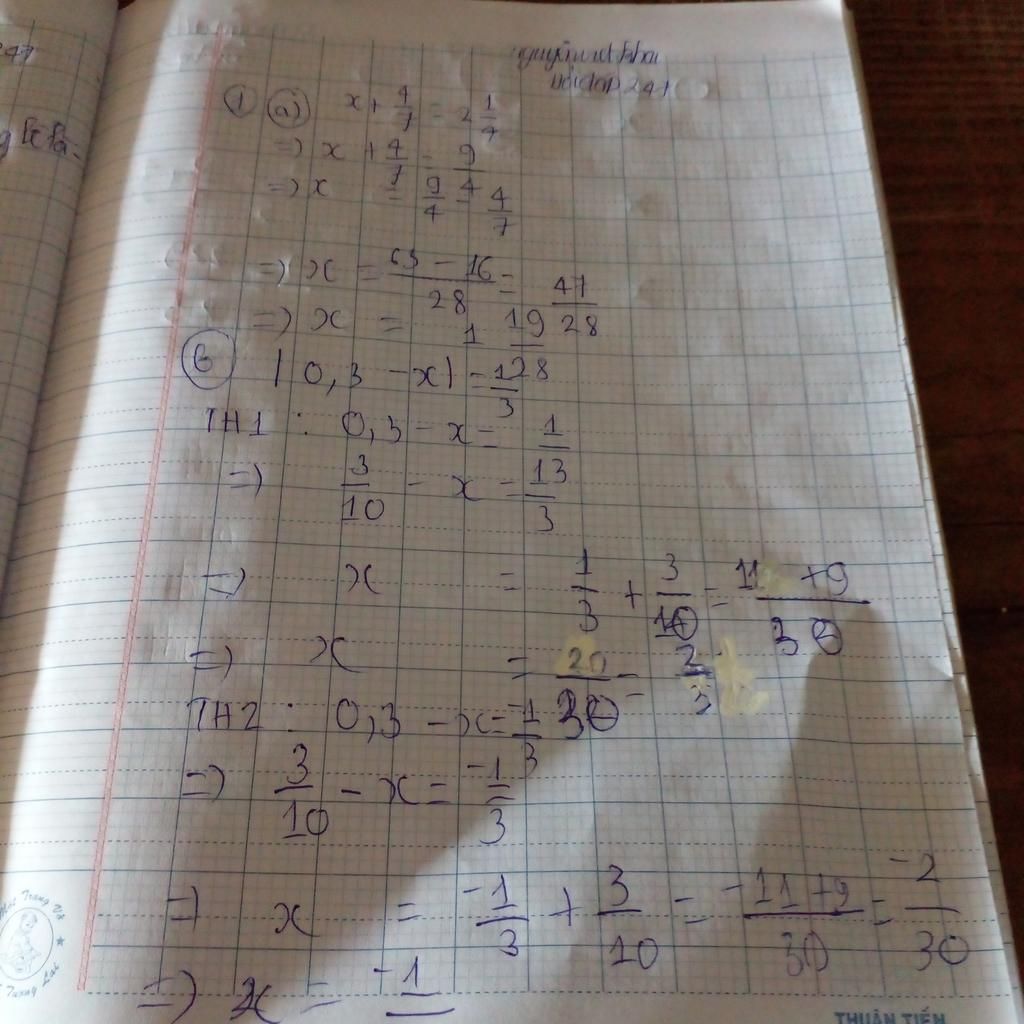 247
nguyễn việt khoa
hỏi đáp 247
① ⓐ x + 4/7 = 2 1/4
=> x + 4/7 = 9/4
=> x = 9/4 - 4/7
=> x = (63 - 16)/28 = 47/28
=> x = 1 19/28
ⓑ | 0,3 - x | = 1/3
TH1 : 0,3 - x = 1/3
=> 3/10 - x = 1/3
=> x = 1/3 + 3/10 = (11 + 9)/30
=> x = 20/30 = 2/3
TH2 : 0,3 - x = -1/3
=> 3/10 - x = -1/3
=> x = -1/3 + 3/10 = (-11 + 9)/30 = -2/30
=> x = -1
Tương Lai
THUẬN TIẾN